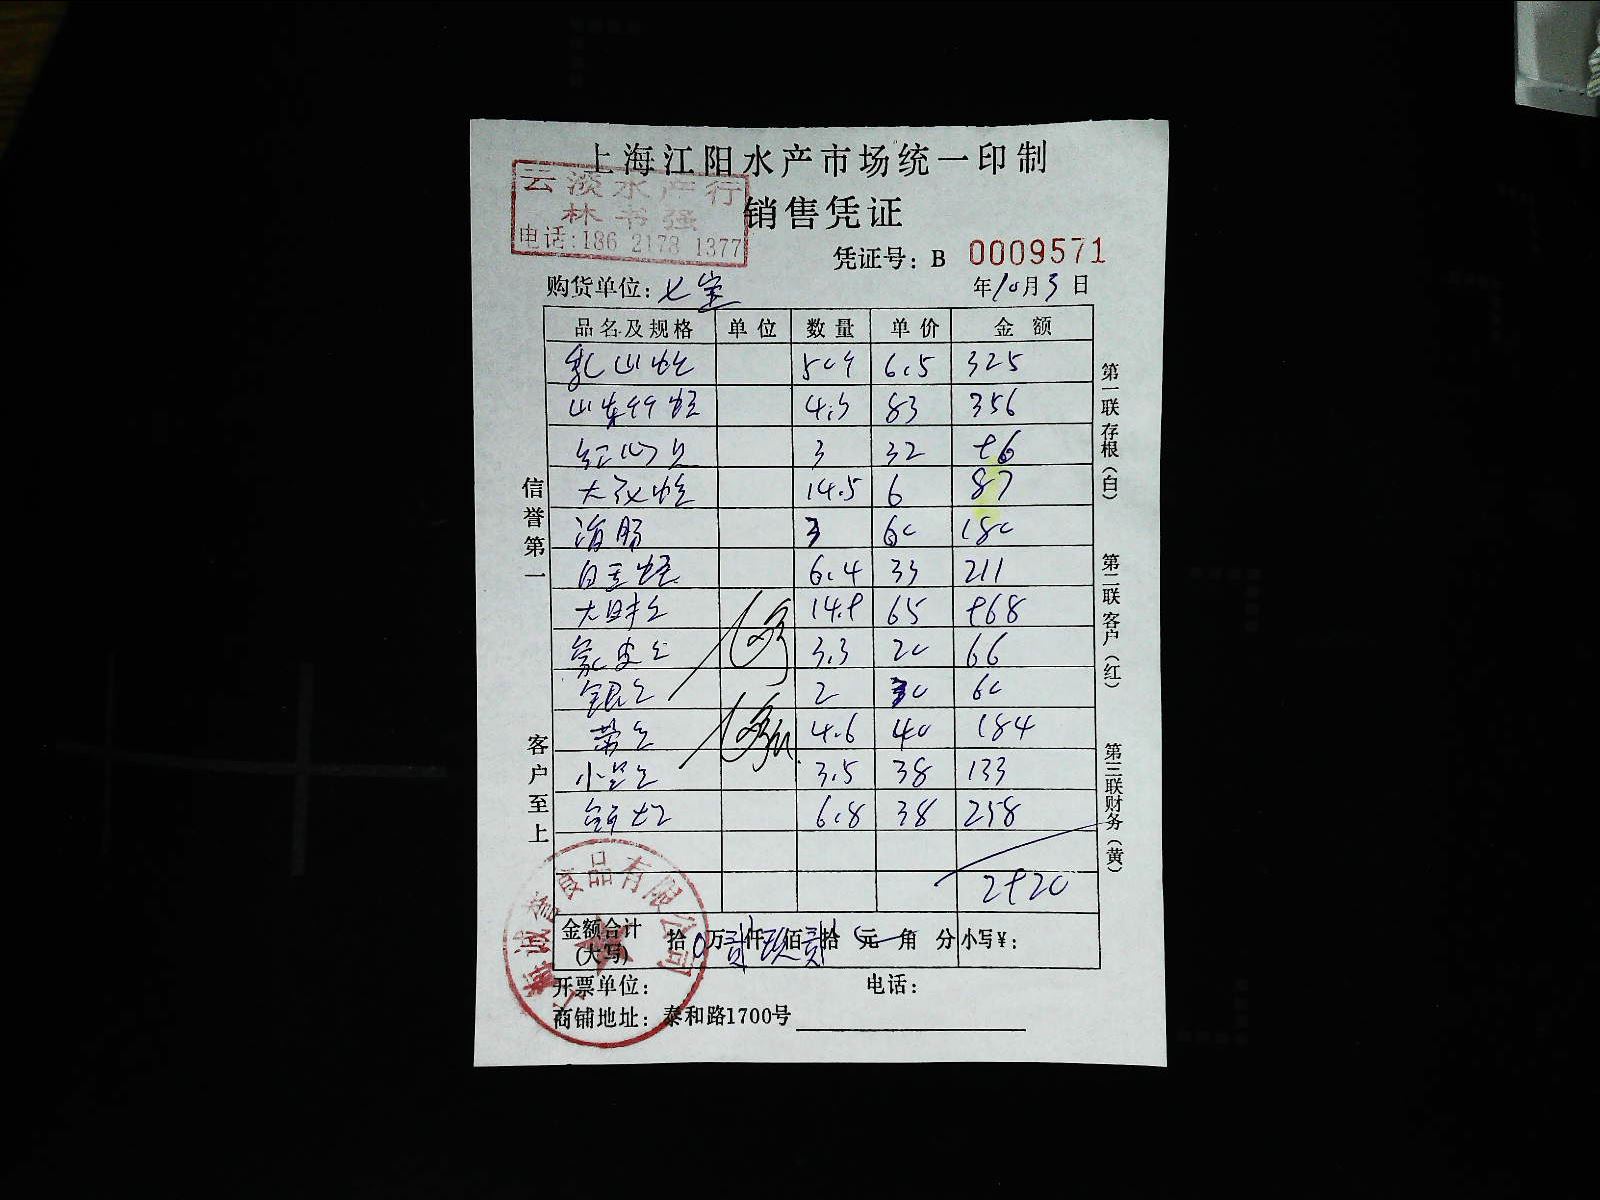 上海江阳水产市场统一印制
云淡水产行
林书强
电话:186 2178 1377
销售凭证
凭证号: B 0009571
购货单位: 七宝 年10月3日
品名及规格 单位 数量 单价 金额
乳山蛏 50个 6.5 325
山东竹蛏 4.3 83 356
红心贝 3 32 96
大汉蛏 14.5 6 87
海肠 3 60 180
白玉蛏 6.4 33 211
65 968
象皮 3.3 20 66
2 30 60
4.6 40 184
3.5 38 133
6.8 38 258
2920
金额合计(大写) 拾0万贰仟玖佰贰拾元角分 小写¥:
开票单位: 电话:
商铺地址: 泰和路1700号
信誉第一
客户至上
第一联 存根(白)
第二联 客户(红)
第三联 财务(黄)
食品有限公司